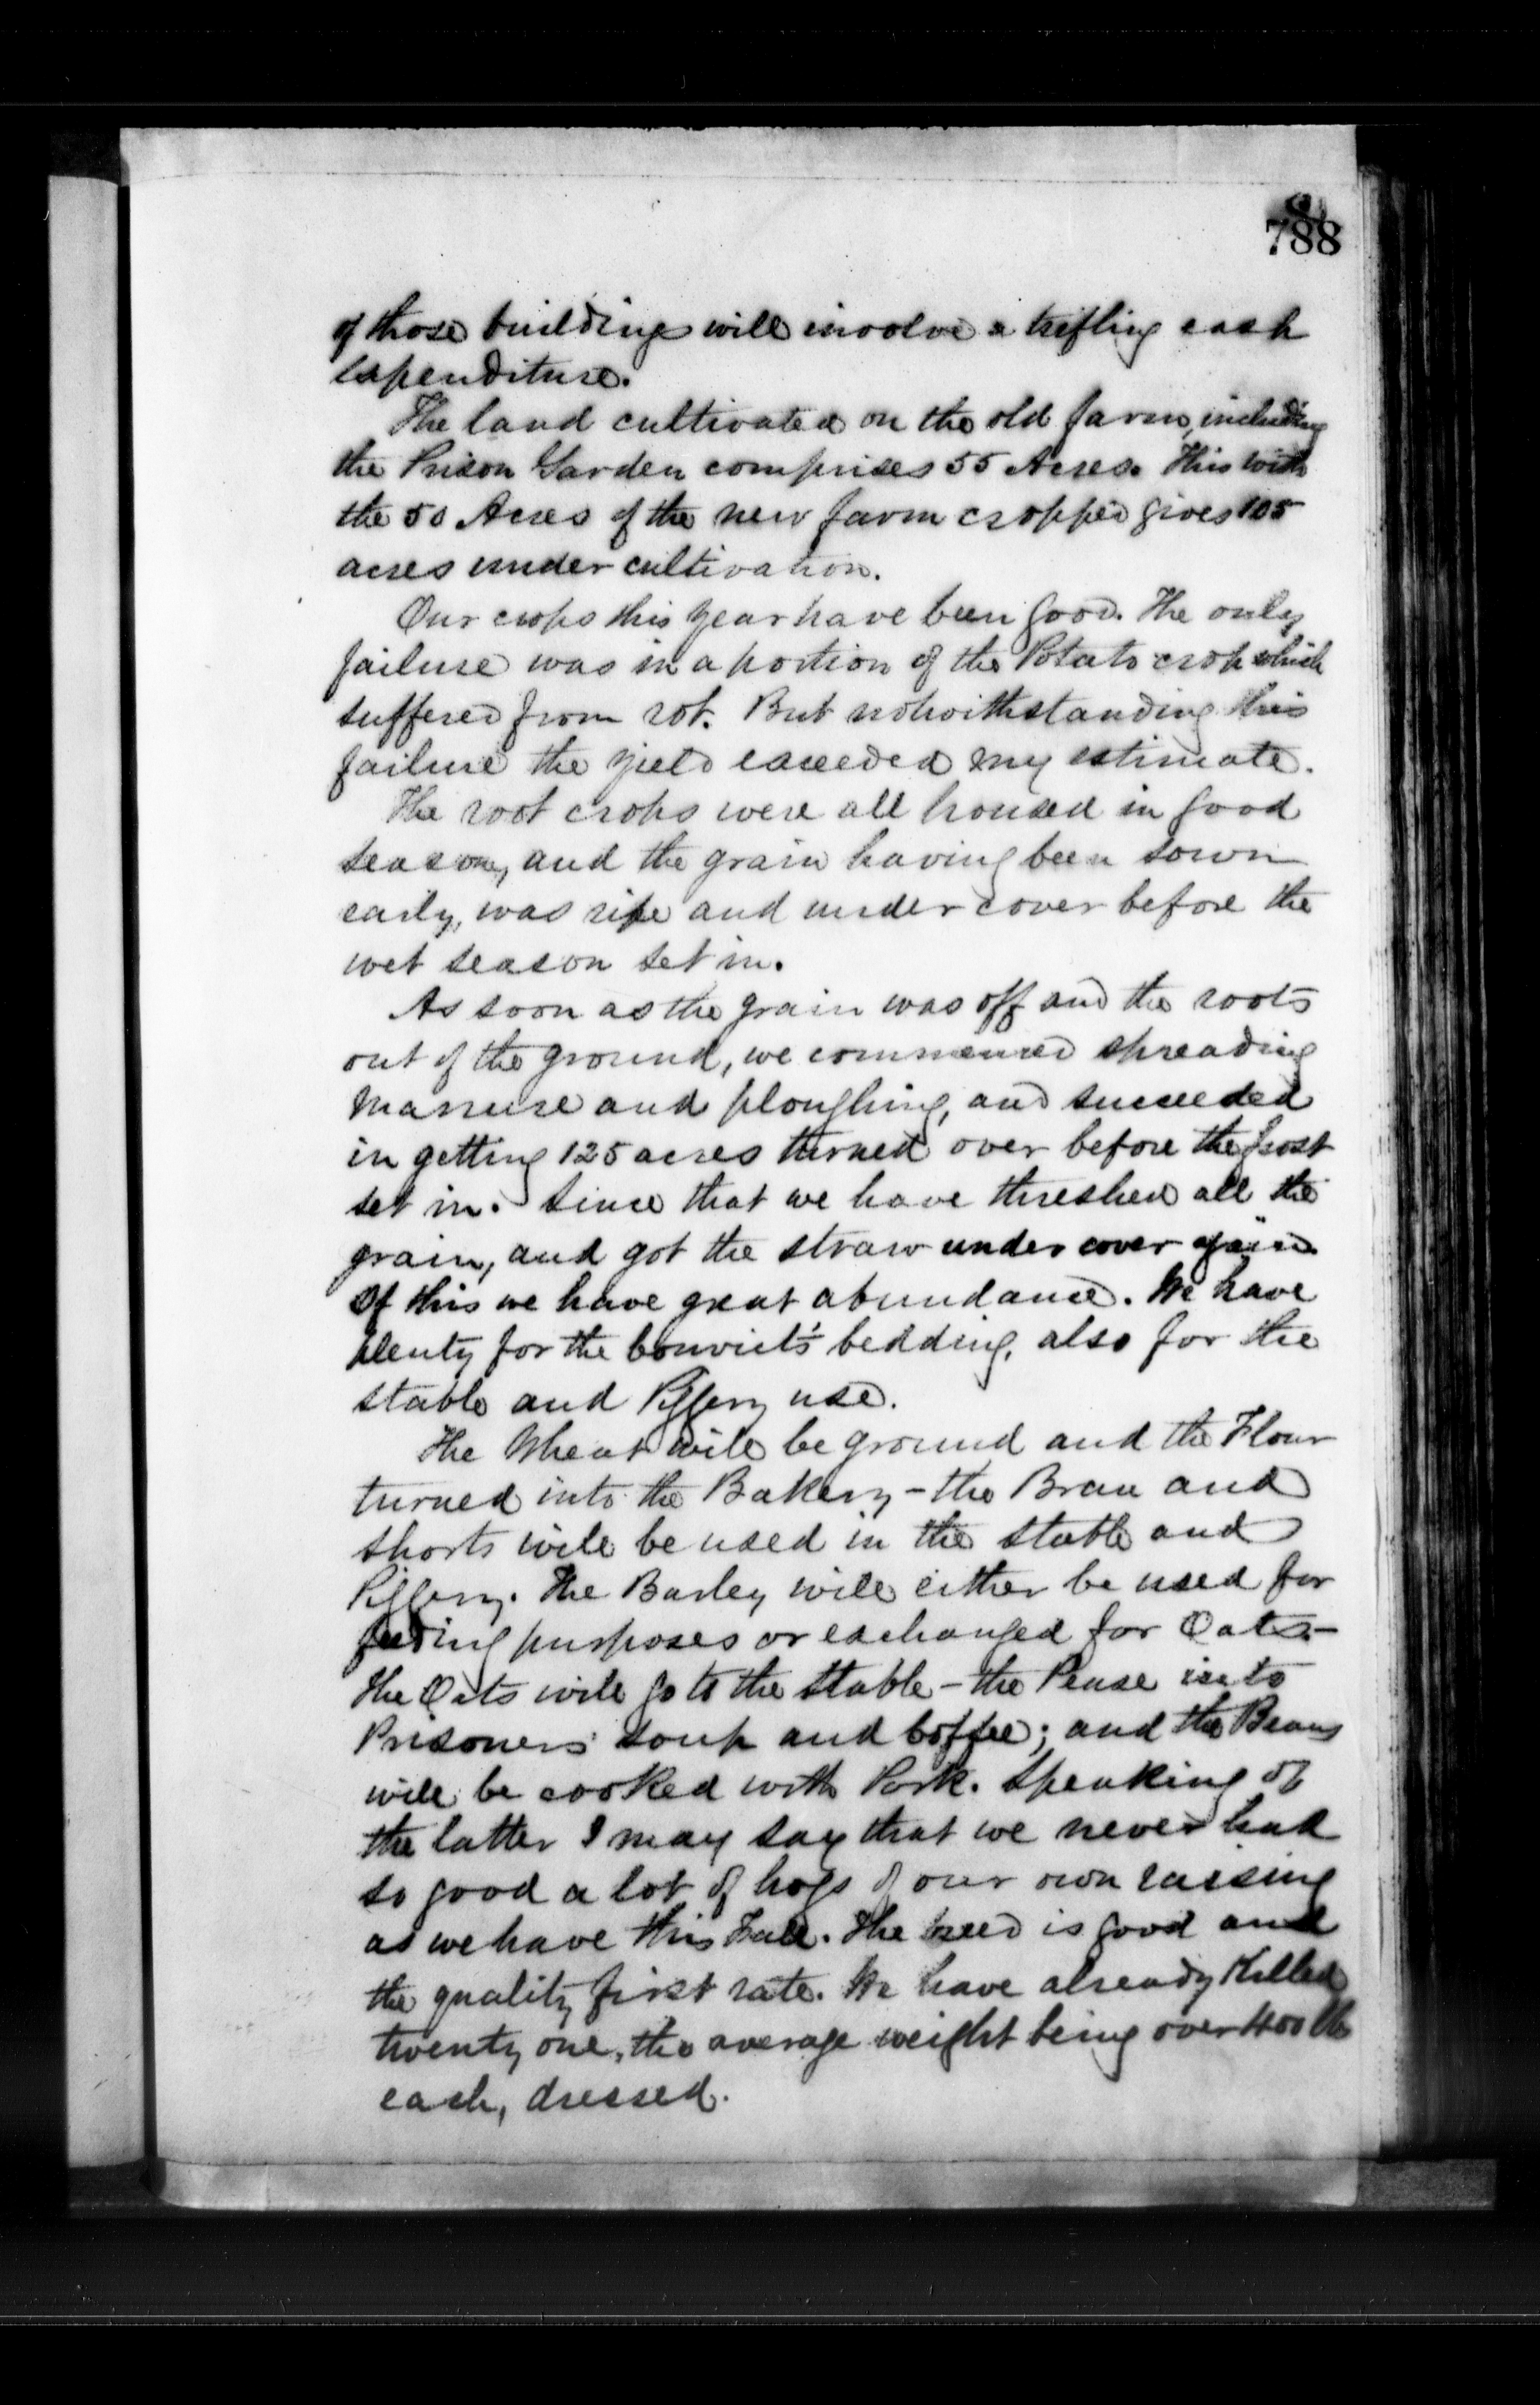 788
of those buildings will involve a trifling cash
expenditure.
The land cultivated on the old farm, including
the Prison Garden comprises 55 Acres. This with
the 50 Acres of the new farm cropped gives 105
acres under cultivation.
Our crops this year have been good. The only
failure was in a portion of the Potato crop which
suffered from rot. But notwithstanding this
failure the yield exceeded my estimate.
The root crops were all housed in good
season, and the grain having been sown
early, was ripe and under cover before the
wet season set in.
As soon as the grain was off and the roots
out of the ground, we commenced spreading
manure and ploughing, and succeeded
in getting 125 acres turned over before the frost
set in. Since that we have threshed all the
grain, and got the straw under cover again.
Of this we have great abundance. We have
plenty for the Convict's bedding, also for the
stable and Piggery use.
The Wheat will be ground and the Flour
turned into the Bakery - the Bran and
shorts will be used in the stable and
Piggery. The Barley will either be used for
feeding purposes or exchanged for Oats -
the Oats will go to the stable - the Pease into
Prisoners' soup and Coffee; and the Beans
will be cooked with Pork. Speaking of
the latter I may say that we never had
so good a lot of hogs of our own raising
as we have this Fall. The breed is good and
the quality first rate. We have already killed
twenty one, the average weight being over 400 lbs
each, dressed.